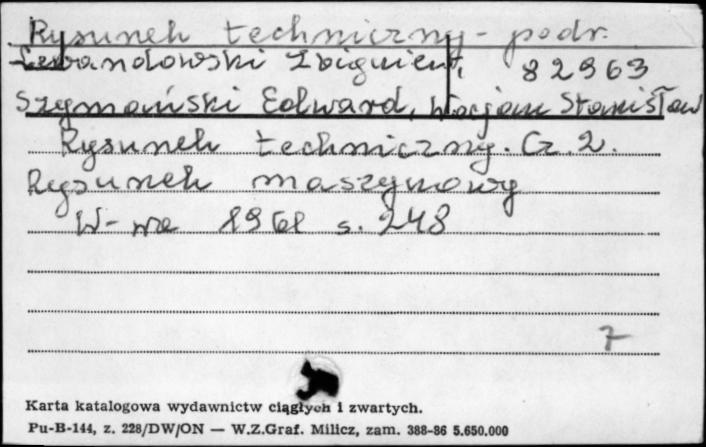 Rysunek techniczny - podr.
Lewandowski Zbigniew, 82963
Szymański Edward, Wacjan Stanisław
Rysunek techniczny. Cz. 2.
Rysunek maszynowy
W-wa 1961 s. 248
7
Karta katalogowa wydawnictw ciągłych i zwartych.
Pu-B-144, z. 228/DW/ON — W.Z.Graf. Milicz, zam. 388-86 5.650.000